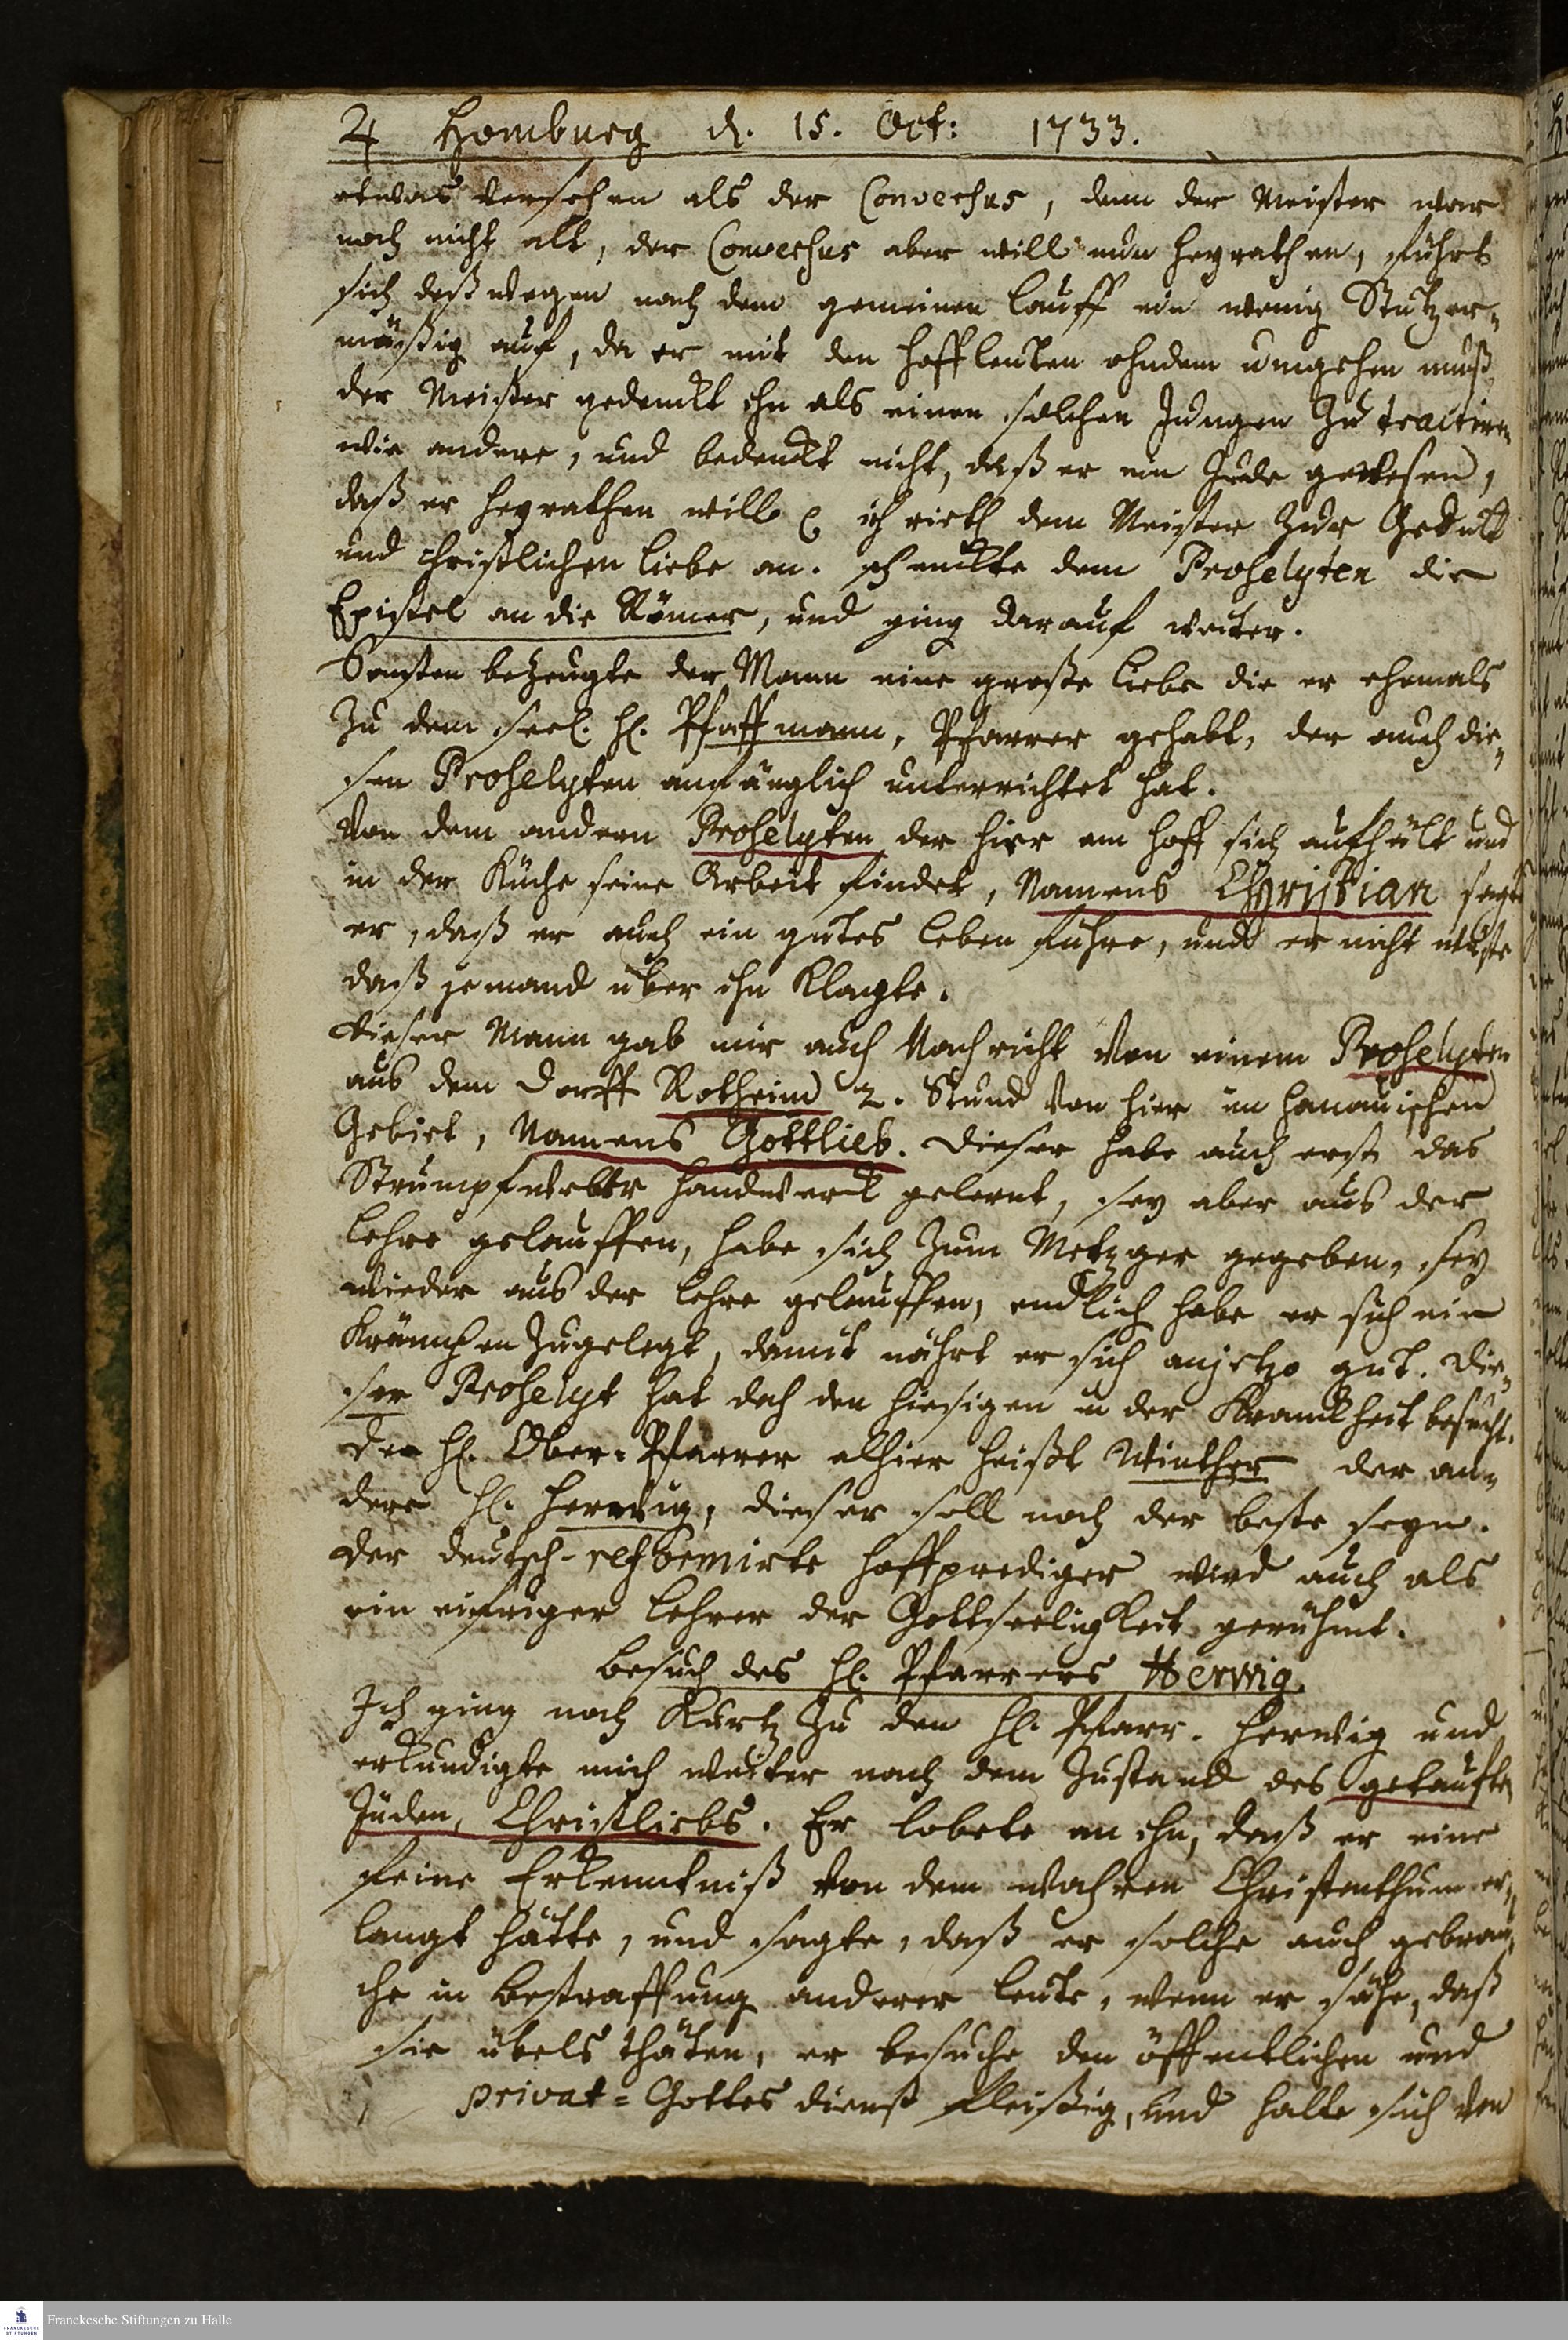 4 Homburg d. 15. Oct: 1733.
etwas versehen als der Conversus, denn der Meister war
noch nicht alt, der Conversus aber will nun heyrathen, führt
sich deßwegen nach dem gemeinen lauff ein wenig Stutzer-
mäßig auf, da er mit den Hoffleuten ohndem umgehen muß,
der Meister gedenckt ihn als einen solchen Jungen zu tractiren
wie andere, und bedenckt nicht, daß er ein Jude gewesen,
daß er heyrathen will ich rieth dem Meister zur Gedult
und christlichen Liebe an. schenckte dem Proselyten die
Epistel an die Römer, und ging darauf weiter.
Sonsten bezeugte der Mann eine große Liebe die er ehemals
zu dem seel. H. Pfaffmann, Pfarrer gehabt, der auch die-
sen Proselyten anfänglich unterrichtet hat.
Von dem andern Proselyten der hier am Hoff sich aufhält und
in der Küche seine Arbeit findet, Namens Christian sagte
er, daß er auch ein gutes Leben führe, und er nicht wüste
daß jemand über ihn klagte.
Dieser Mann gab mir auch Nachricht von einem Proselyten
aus dem Dorff Rotheim 2. Stund von hier im Hanauischen
Gebiet, Namens Gottlieb. Dieser habe auch erst das
Strumpfweber Handwerck gelernt, sey aber aus der
Lehre gelauffen, habe sich zum Metzger gegeben, sey
wieder aus der Lehre gelauffen, endlich habe er sich ein
Krämchen zugelegt, damit nährt er sich anjetzo gut. Die-
ser Proselyt hat doch den hiesigen in der Kranckheit besucht.
Der H. Ober-Pfarrer alhier heißt Winther der an-
dere H. Herwig, dieser soll noch der beste seyn.
Der deutsch-reformirte Hoffprediger wird auch als
ein eifriger Lehrer der Gottseeligkeit gerühmt.
Besuch des H. Pfarrers Herwig.
Ich ging noch kurtz zu den H. Pfarr. Herwig und
erkundigte mich weiter nach dem Zustand des getauften
Juden, Christliebs. Er lobete an ihn, daß er eine
feine Erkenntniß von dem wahren Christenthum er-
langt hätte, und sagte, daß er solche auch gebrau-
che in Bestraffung anderer Leute, wenn er sähe, daß
sie übels thäten, er besuche den öffentlichen und
privat-Gottes dienst fleißig, und halte sich von
Franckesche Stiftungen zu Halle